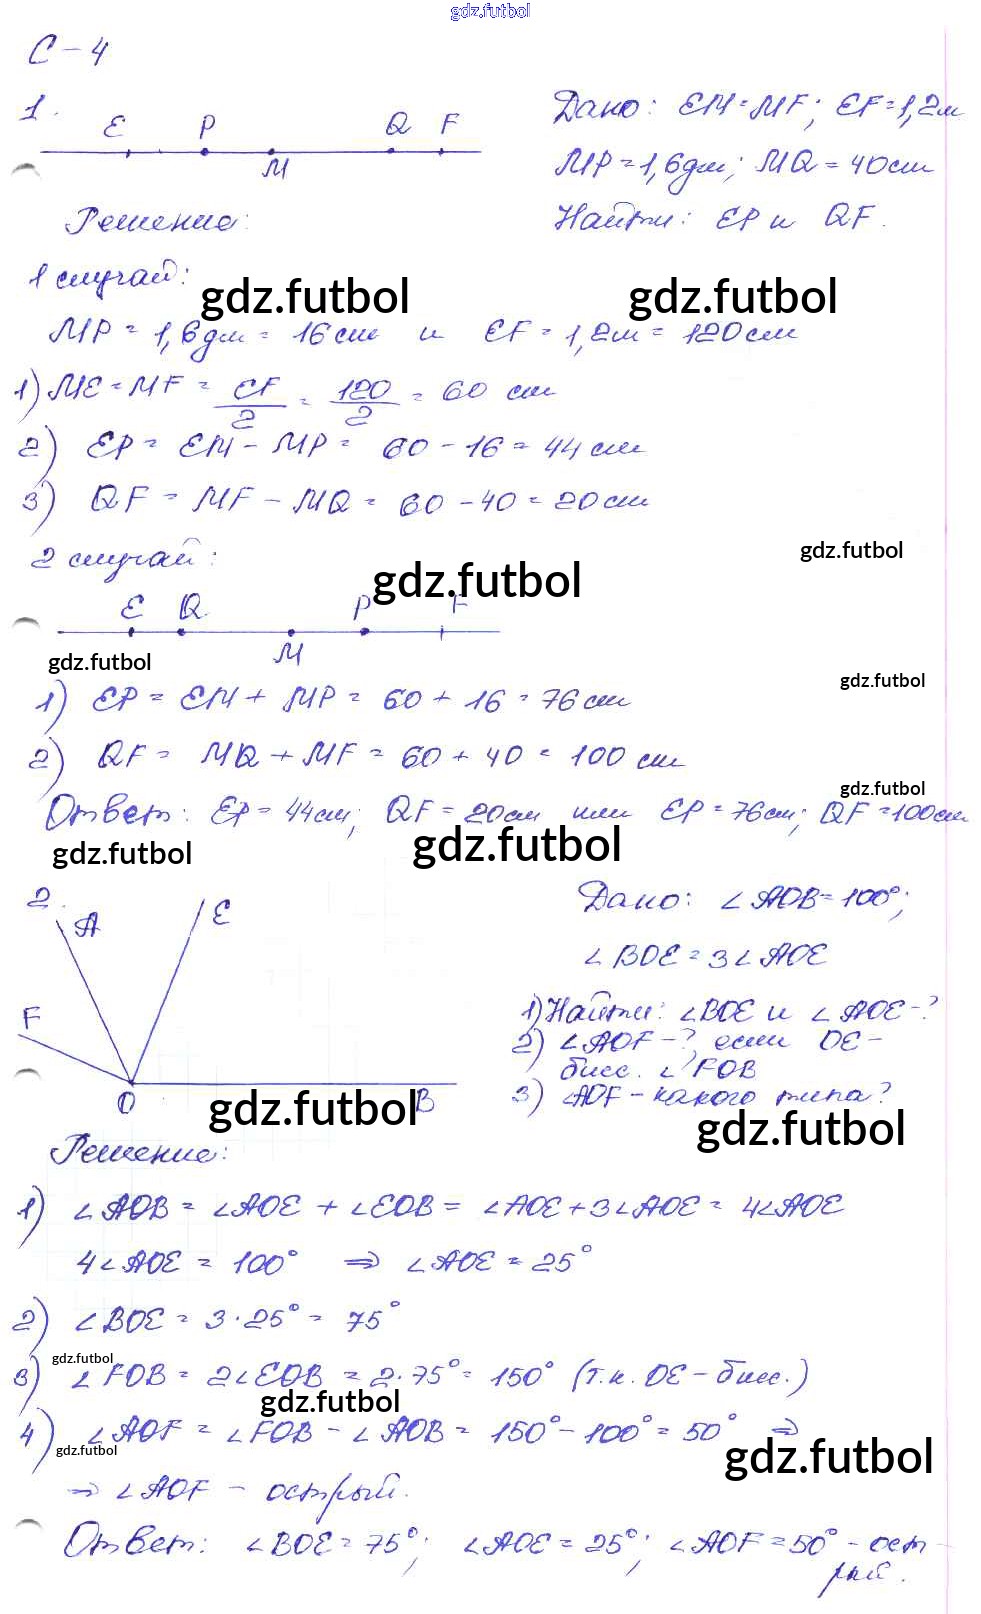 gdz.futbol
С-4
1.
E P Q F
M
Дано: EM=MF; EF=1,2м
MP=1,6дм; MQ=40см
Найти: EP и QF.
Решение:
1 случай:
gdz.futbol gdz.futbol
MP = 1,6дм = 16см и EF = 1,2м = 120см
1) ME = MF = EF/2 = 120/2 = 60 см
2) EP = EM - MP = 60 - 16 = 44 см
3) QF = MF - MQ = 60 - 40 = 20см
gdz.futbol
2 случай:
gdz.futbol
E Q P F
M
gdz.futbol
gdz.futbol
1) EP = EM + MP = 60 + 16 = 76см
2) QF = MQ + MF = 60 + 40 = 100 см
gdz.futbol
Ответ: EP = 44см; QF = 20см или EP = 76см; QF = 100см
gdz.futbol gdz.futbol
2.
A E
F
O B
gdz.futbol
Дано: ∠AOB=100°;
∠BOE = 3∠AOE
1) Найти: ∠BOE и ∠AOE-?
2) ∠AOF-?, если OE-
бисс. ∠FOB
3) ∠AOF - какого типа?
gdz.futbol
Решение:
1) ∠AOB = ∠AOE + ∠EOB = ∠AOE + 3∠AOE = 4∠AOE
4∠AOE = 100° ⇒ ∠AOE = 25°
2) ∠BOE = 3·25° = 75°
gdz.futbol
3) ∠FOB = 2∠EOB = 2·75° = 150° (т.к. OE - бисс.)
gdz.futbol
4) ∠AOF = ∠FOB - ∠AOB = 150° - 100° = 50° ⇒
gdz.futbol gdz.futbol
⇒ ∠AOF - острый.
Ответ: ∠BOE = 75°; ∠AOE = 25°; ∠AOF = 50° - ост-
рый.